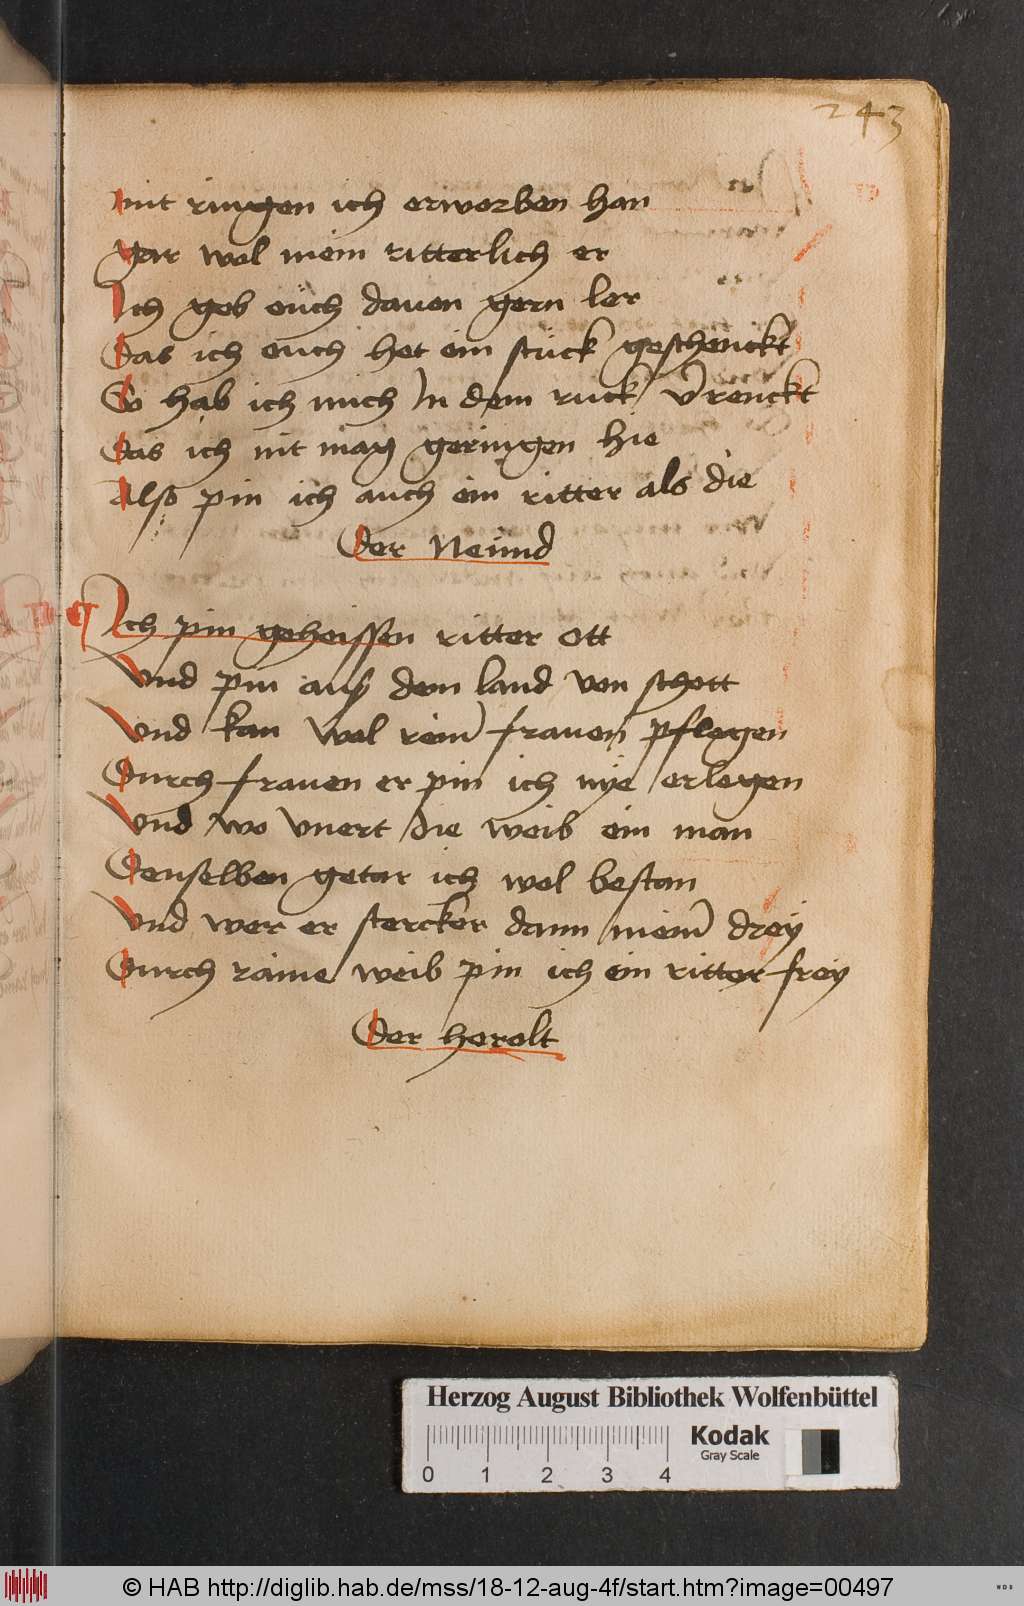 243
mit ringen ich erworben han
gar wol mein ritterlich er
Ich geb euch davon gern ler
Das ich euch het ein stuck geschenckt
So hab ich mich In dem ruck v̄renckt
Das ich nit mag geringen hie
Also pin ich auch ein ritter als die
Der Neünd
Ich pin geheissen ritter ott
Vnd pin auß dem land von schott
Vnd kan wol rein̄ frauen pflegen
Durch frauen er pin ich nye erlegen
Vnd wo vnert die weib ein man
Denselben getar ich wol bestan
Vnd wer er stercker dann mein̄ drey
Durch raine weib pin ich ein ritter frey
Der herolt
Herzog August Bibliothek Wolfenbüttel
Kodak
Gray Scale
0 1 2 3 4
© HAB http://diglib.hab.de/mss/18-12-aug-4f/start.htm?image=00497